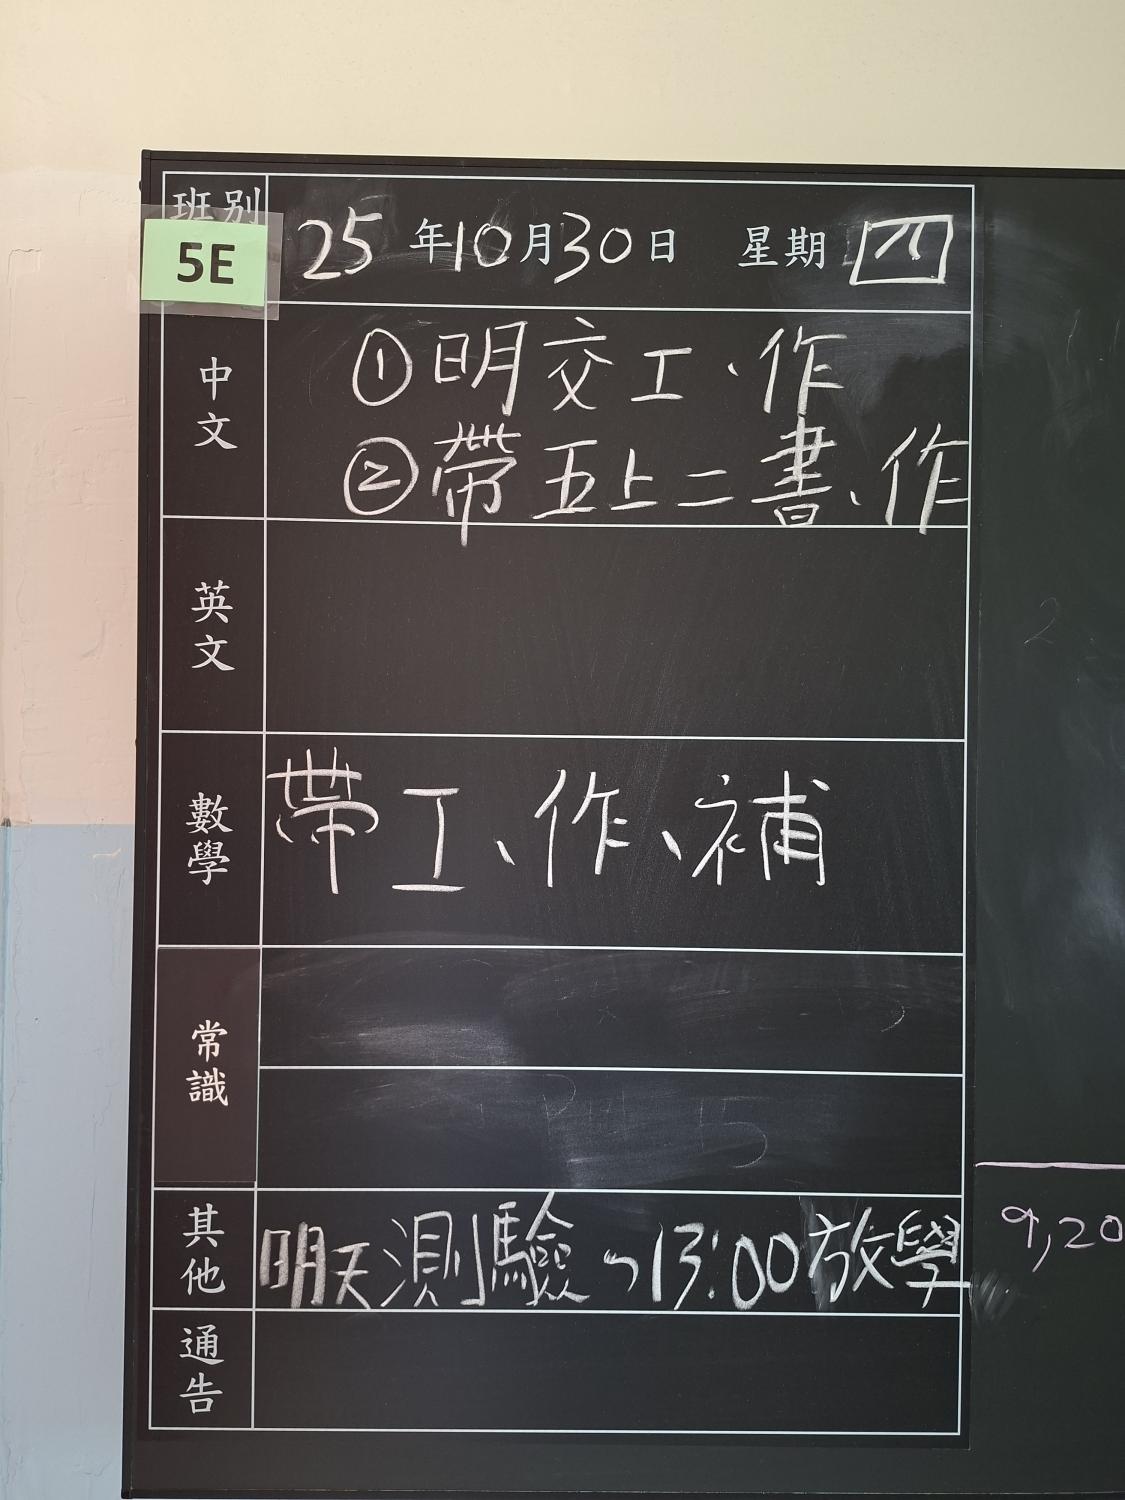 班別
5E
25年10月30日 星期四
中文
①明交工、作
②帶五上二書、作
英文
數學
帶工、作、補
常識
其他
明天測驗、13:00放學
9,20
通告